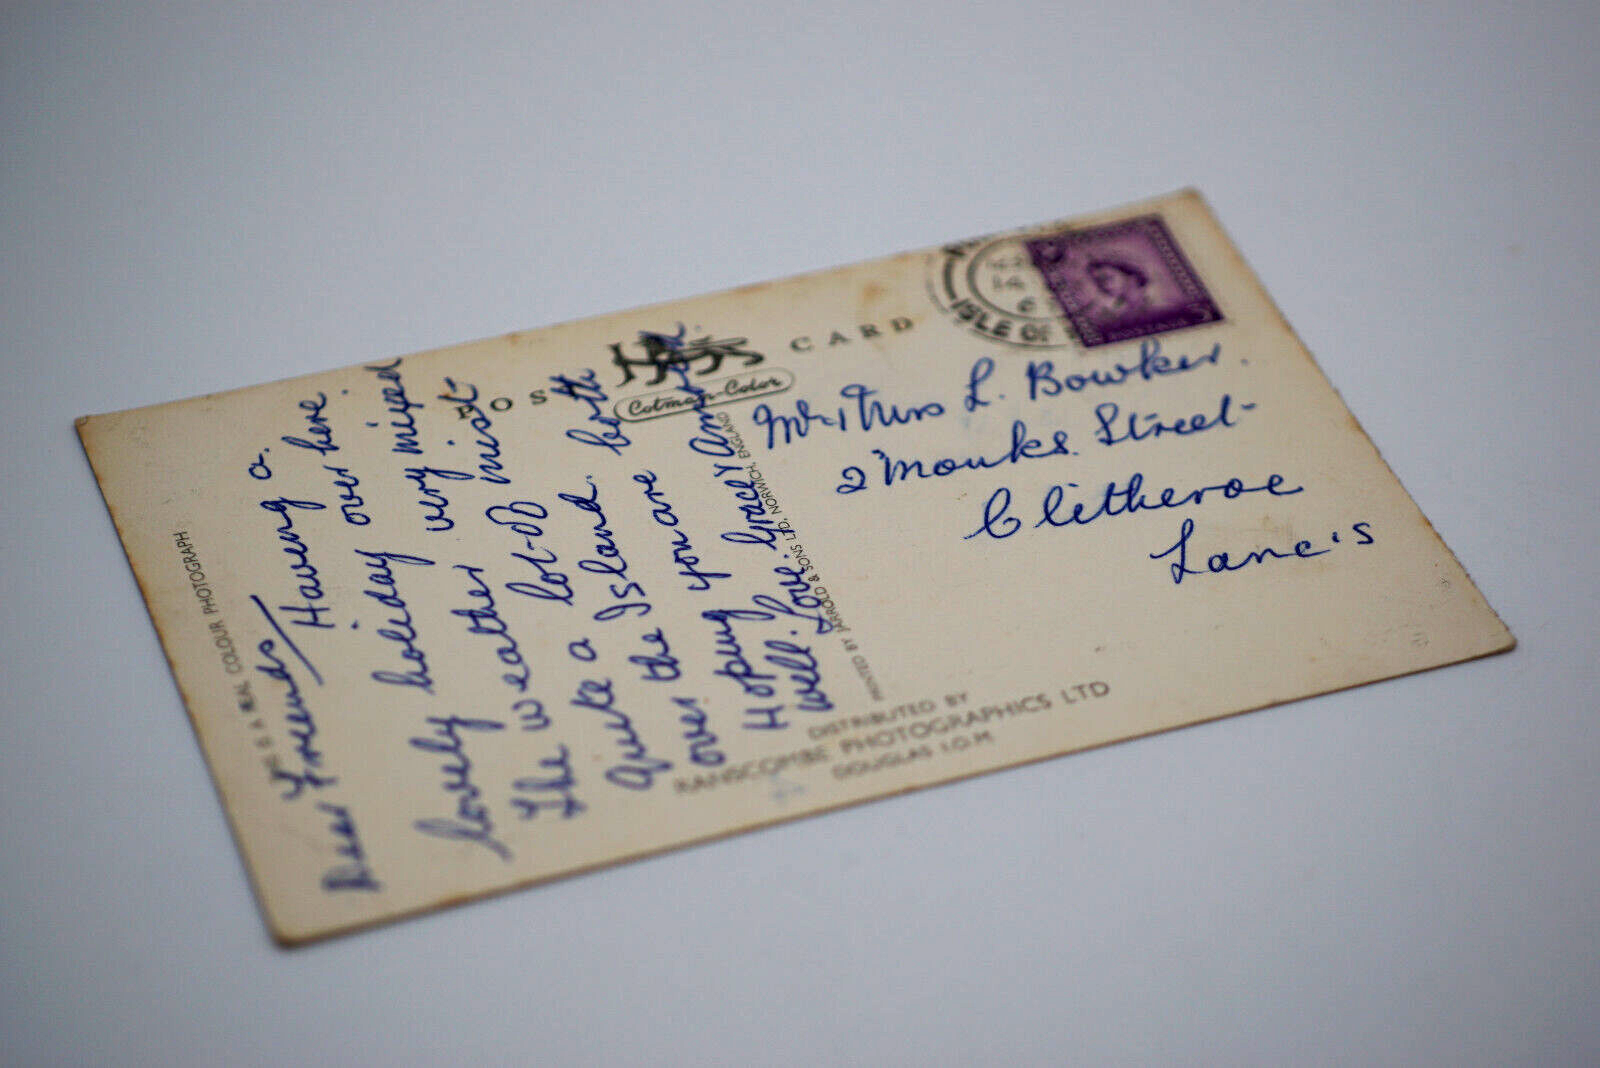 THIS IS A REAL COLOUR PHOTOGRAPH
Dear Friends Having a.
lovely holiday over here.
The weather very mixed
Quite a lot-of mist-
over the Island.
Hoping you are both
well. Love. Grace &
POS CARD
Cotman-Color
PRINTED BY JARROLD & SONS LTD, NORWICH, ENGLAND
DISTRIBUTED BY
RANSCOMBE PHOTOGRAPHICS LTD
DOUGLAS I.O.M.
ISLE OF
Mr & Mrs L. Bowker.
2 Monks. Street-
Clitheroe
Lanc's